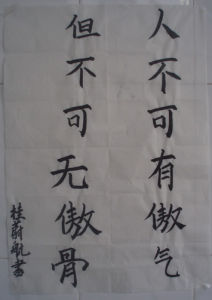 人不可有傲气
但不可无傲骨
桂蔚航书